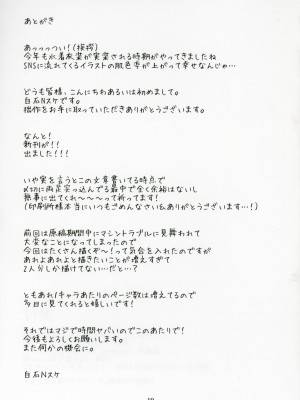 あとがき
あっっっつい！(挨拶)
今年も水着衣装が実装される時期がやってきましたね
SNSに流れてくるイラストの肌色率が上がって幸せなんじゃ…
どうも皆様、こんにちわあるいは初めまして。
白石Nスケです。
拙作をお手に取っていただきありがとうございます。
なんと！
新刊が！！
出ました！！！
いや実を言うとこの文章書いてる時点で
〆切に両足突っ込んでる最中で全く余裕はないし
無事に出てくれ～～～って祈ってます！
(印刷所様本当にいつもごめんなさい&ありがとうございます…！)
前回は原稿期間中にマシントラブルに見舞われて
大変なことになってしまったので
今回はたくさん描くぞ～！って気合を入れたのですが
あれよあれよと描きたいことが増えすぎて
2人分しか描けてない…だと…？
ともあれ1キャラあたりのページ数は増えてるので
今日に見てくれると嬉しいです！
それではマジで時間ヤバいのでこのあたりで！
今後もよろしくお願いします。
また何かの機会に。
白石Nスケ